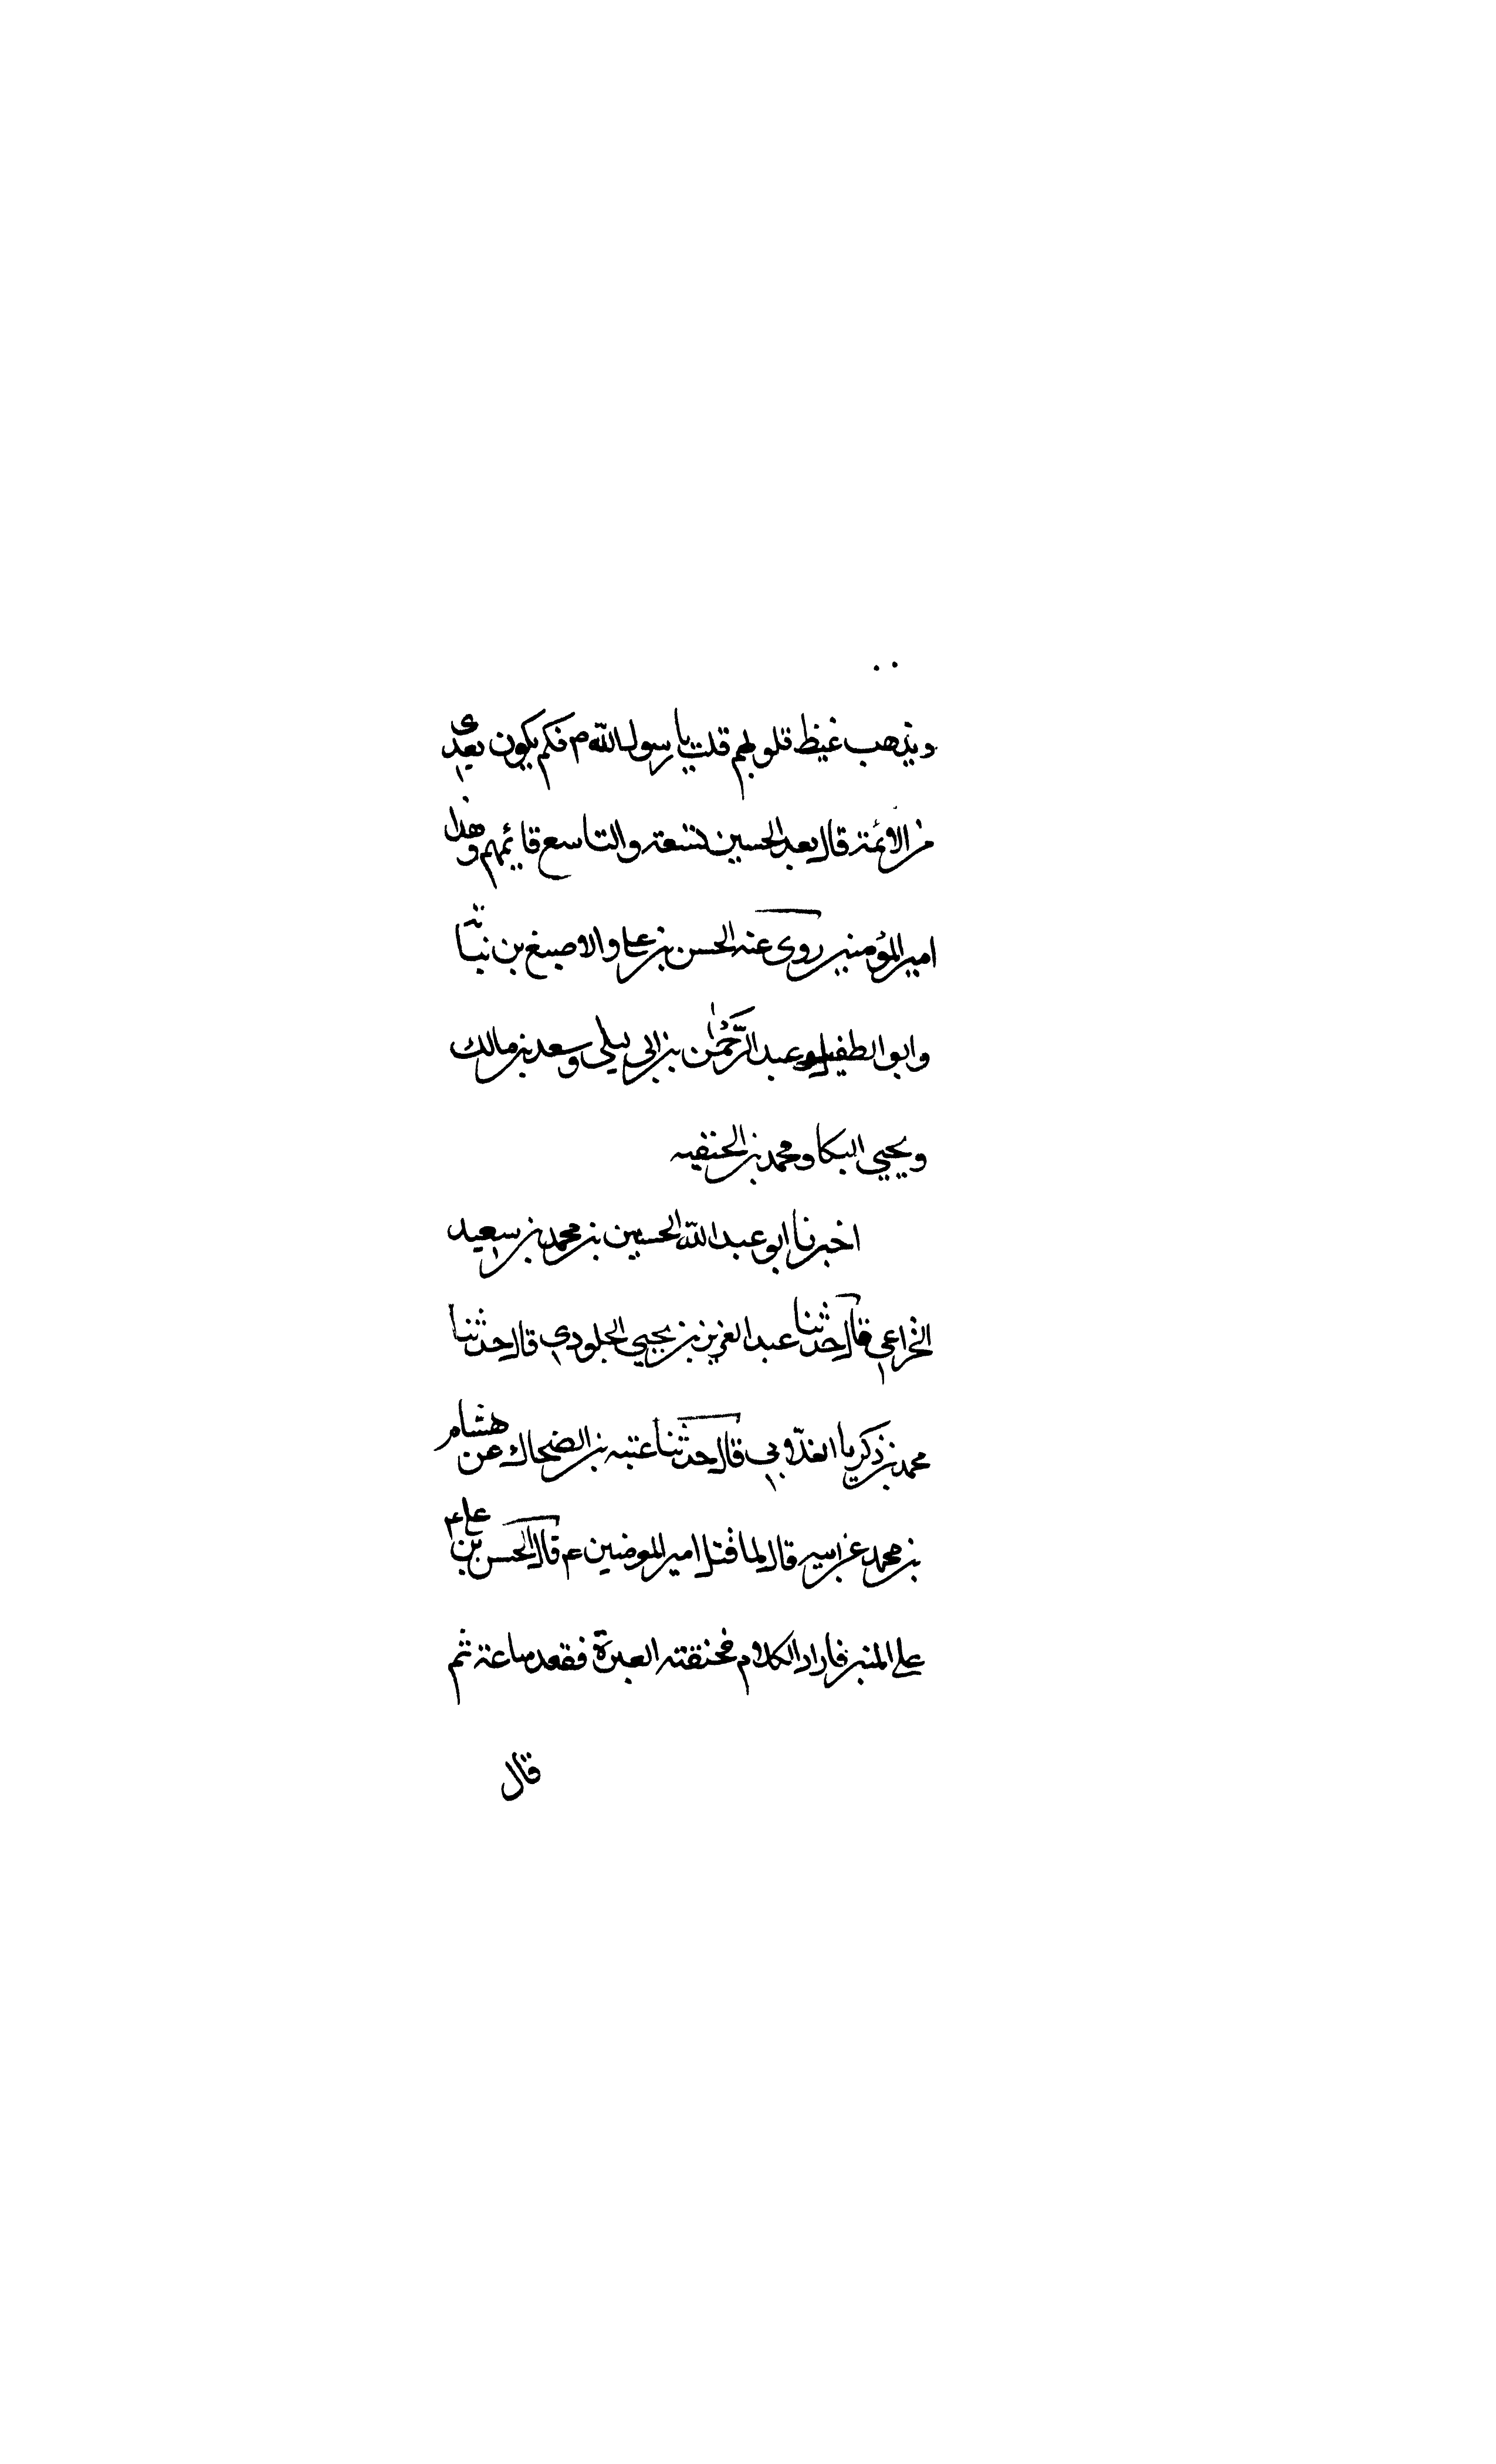 ويذهب غيظ قلوبهم قلت يا رسول الله م فكم يكون بعدي
من الائمة قال بعد الحسين تسعة والتاسع قائمهم وهذا
امير المؤمنين روى عنه الحسن بن علي والاصبغ بن نباتة
وابو الطفيل وعبد الرحمٰن بن ابي ليلى وسعد بن مالك
ويحيي البكا ومحمد بن الحنفيه
اخبرنا ابو عبد الله الحسين بن محمد بن سعيد
الخزاعي قال حدثنا عبد العزيز بن يحيي الجلودي قال حدثنا
محمد بن ذكريا الغلابي قال حدثنا عتبه بن الضحاك عن هشام
بن محمد عن ابيه قال لما قتل امير المومنين ع قال الحسن بن علي ع
علي المنبر فاراد الكلام فخنقته العبرة فقعد ساعة ثم
قال